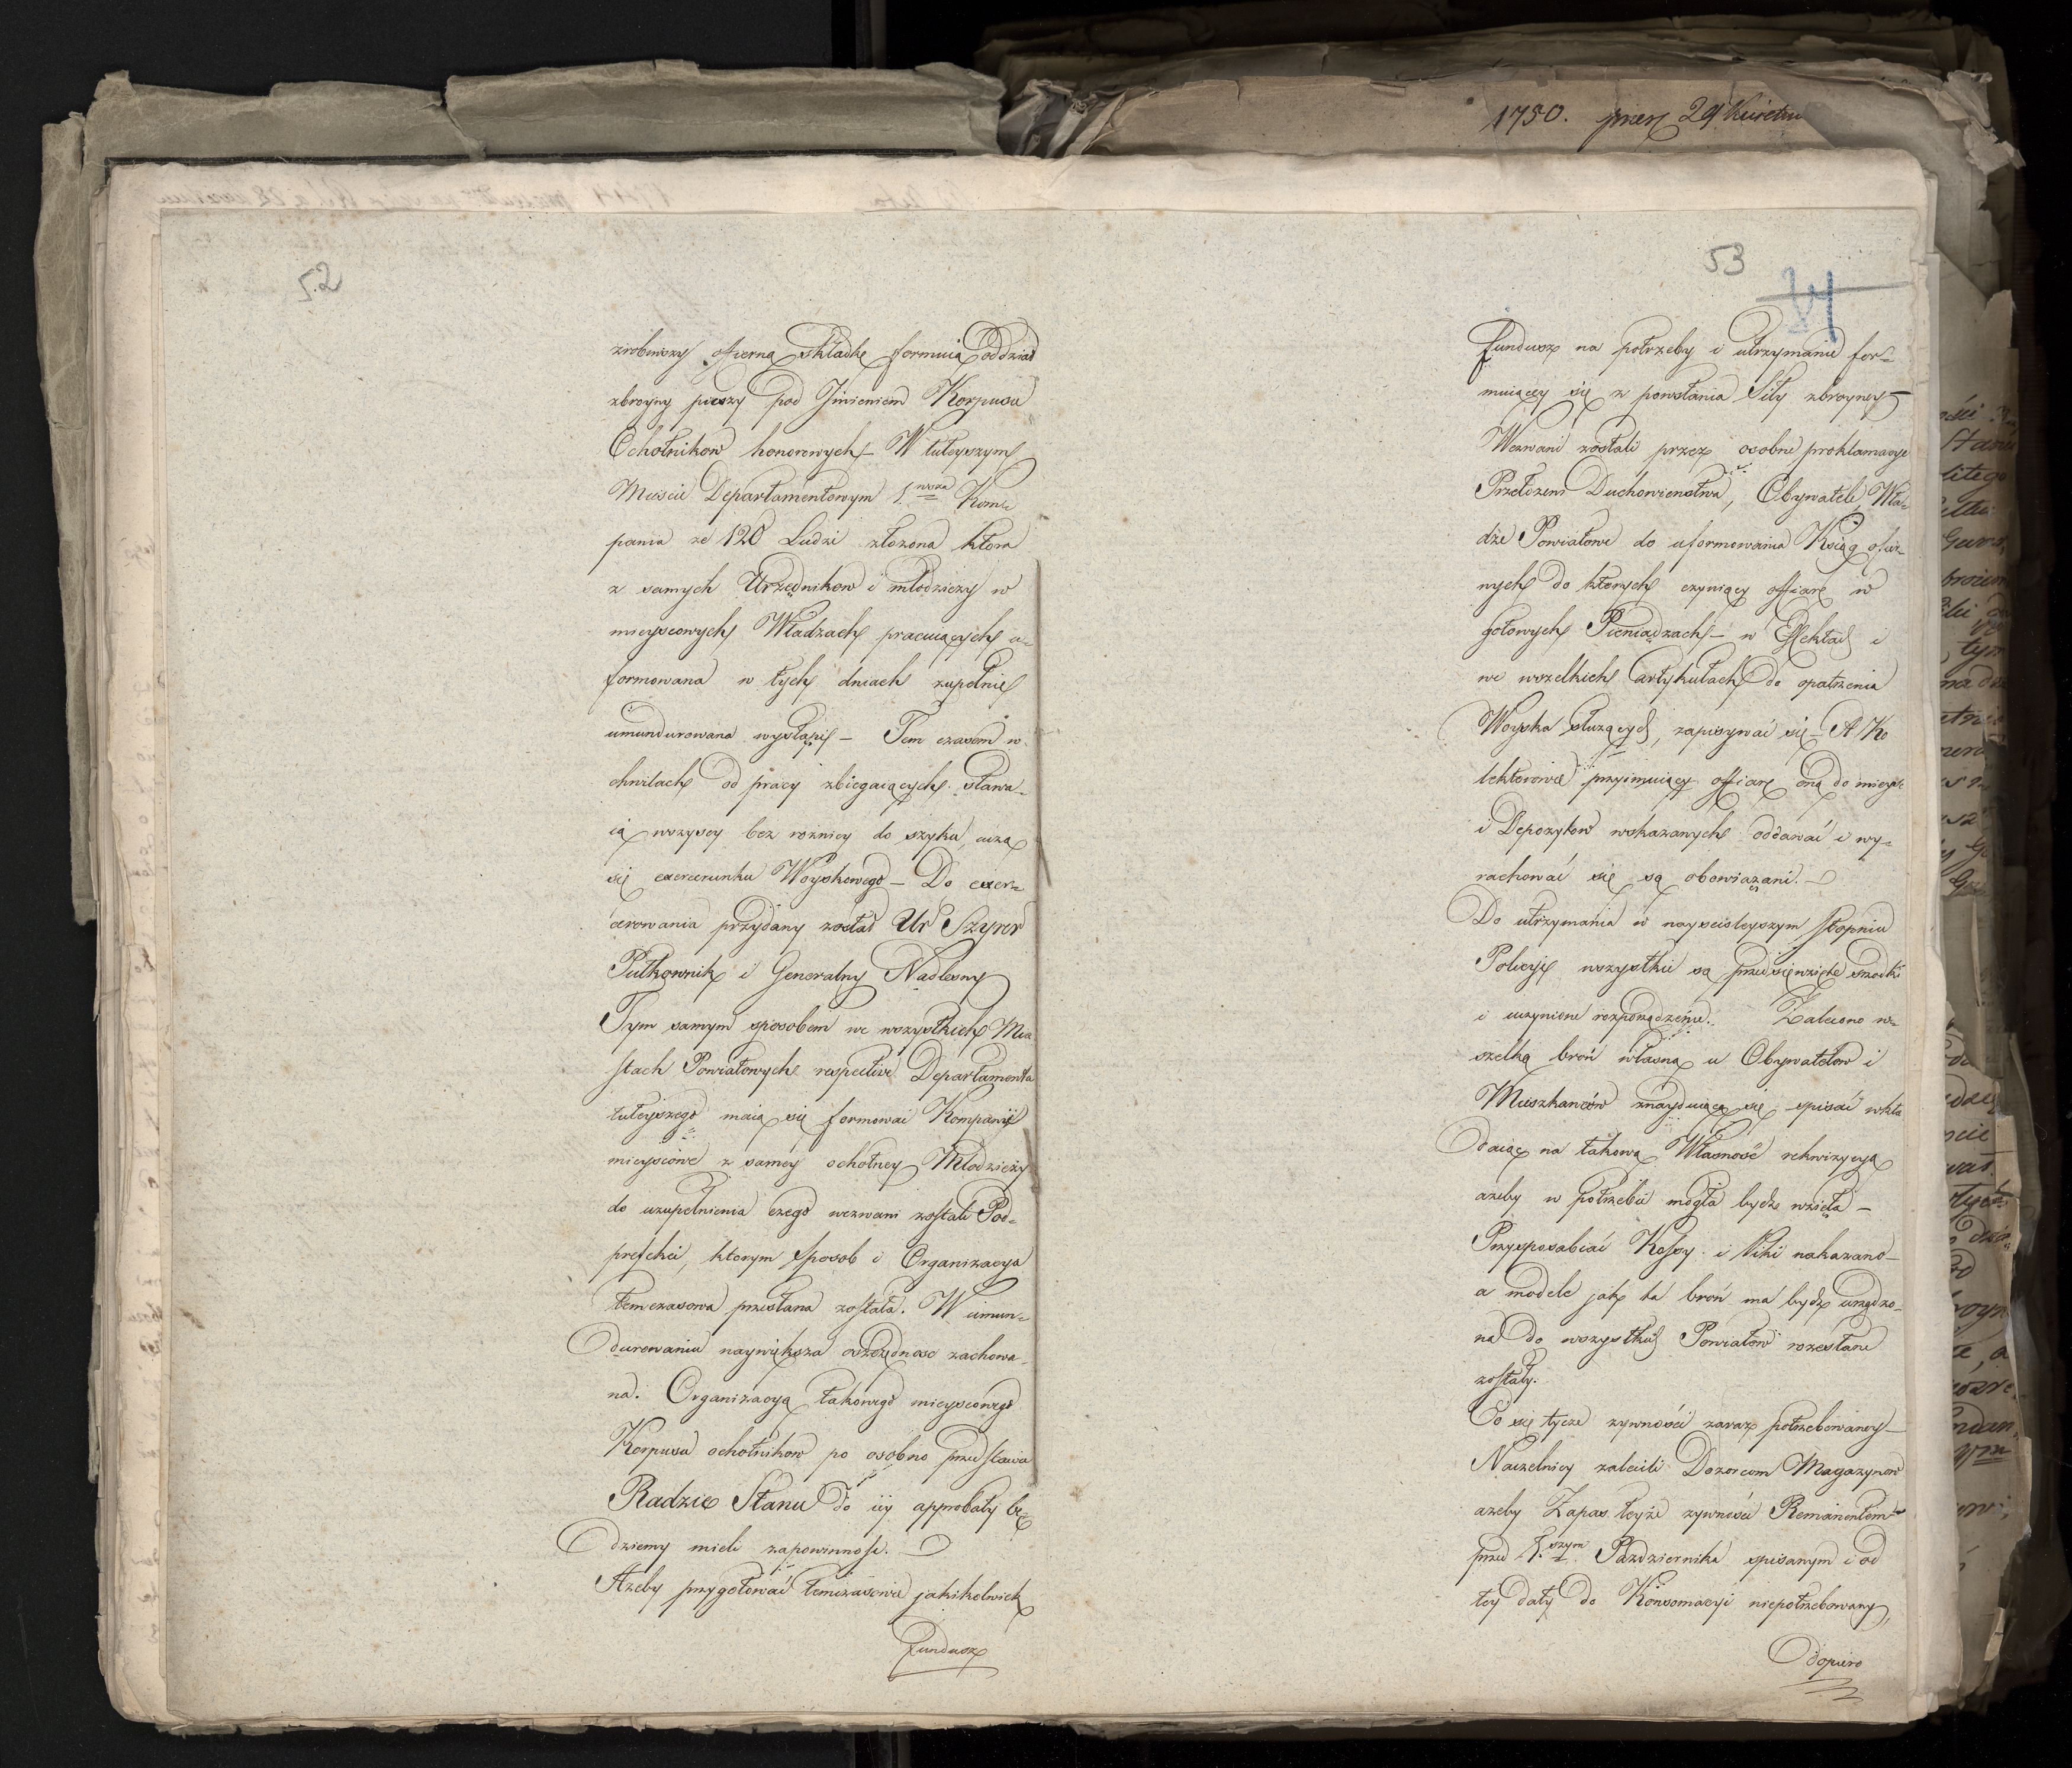 1750. przez 29 Kwietn
52
zrobiwszy offierną składkę formuią oddział
zbroyny pieszy pod Jmieniem Korpusu
Ochotnikow honorowych – W tuteyszym
Mieście Departamentowym 1.wsza Kom=
pania ze 120 Ludzi złozona ktora
z samych Urzędnikow i młodziezy w
mieyscowych Władzach pracuiących u=
formowana w tych dniach zupełnie
umundurowana wystąpi – Tem czasem w
chwilach od pracy zbiegaiących stawa=
ią wszyscy bez rożnicy do szyku, uczą
się exercerunku Woyskowego – Do exer=
cerowania przydany został Ur Szyrer
Pułkownik i Generalny Nadlesny
Tym samym sposobem we wszystkich Mia
stach Powiatowych respective Departamentu
tuteyszego maią się formować Kompanie
mieyscowe z samey ochotney Młodzieży
do uzupełnienia czego wezwani zostali Pod=
prefekci, ktorym sposob i Organizacya
temczasowa przesłana została. W umun=
durowaniu naywiększa oszczędnosc zachowa=
na. Organizacyą takowego mieyscowego
Korpusu ochotnikow po osobno przedstawić
Radzie Stanu do iey approbaty bę
dziemy mieli za powinność.
Azeby przygotować temczasowie jakikolwiek
Fundusz
53
Fundusz na potrzeby i utrzymanie for=
muiącey się z powstania Siły zbroyney –
Wezwani zostali przez osobne proklamacye
Przełozeni Duchowienstwa, Obywatele, Wła=
dze Powiatowe do uformowania Xsiąg ofiar=
nych do ktorych czyniący offiarę w
gotowych Pieniądzach – w Effektach i
we wszelkich artykułach do opatrzenia
Woyska służących, zapisywać się – A Ko
lektorowie przyimuiący offiarę oną do mieysc
i Depozytow wskazanych oddawać i wy=
rachować się są obowiązani. –
Do utrzymania w nayscisleyszym stopniu
Policyi wszystkie są przedsięwzięte srodki
i uczynione rozporządzenie. Zalecono w=
szelką broń własną u Obywatelow i
Mieszkancow znayduiącą się spisać wkła
daiąc na takową Własność rekwizycyą
azeby w potrzebie mogła bydz wzięta –
Przysposabiać Kosy i Piki nakazano –
a modele jak ta broń ma bydz urządzo=
na do wszystkich Powiatow rozesłane
zostały.
Co się tycze zywności zaraz potrzebowaney –
Naczelnicy zalecili Dozorcom Magazynow
azeby Zapas teyże zywności Remanentem
przed 1.szym Pazdziernika spisanym i od
tey daty do Konsomacyi niepotrzebowany,
dopiero